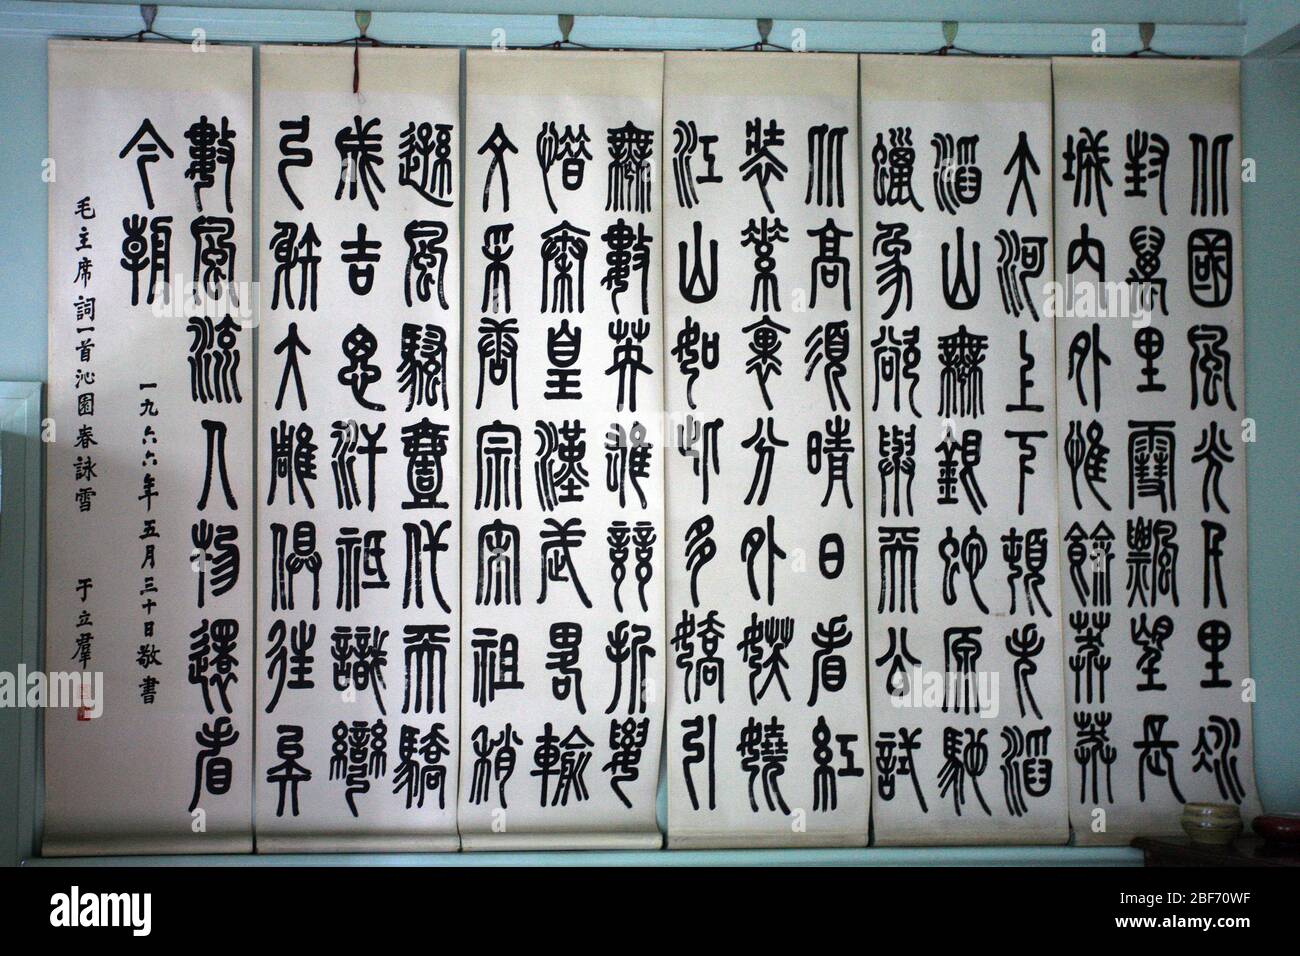 北國風光千里冰
封萬里雪飄望長
城內外惟餘莽莽
大河上下頓失滔
滔山舞銀蛇原馳
蠟象欲與天公試
比高須晴日看紅
裝素裹分外妖嬈
江山如此多嬌引
無數英雄競折腰
惜秦皇漢武略輸
文采唐宗宋祖稍
遜風騷壹代天驕
成吉思汗祇識彎
弓射大雕俱往矣
數風流人物還看
今朝
一九六六年五月三十日敬書
毛主席詞一首沁園春詠雪 于立羣
alamy
Image ID: 2BF70WF
www.alamy.com